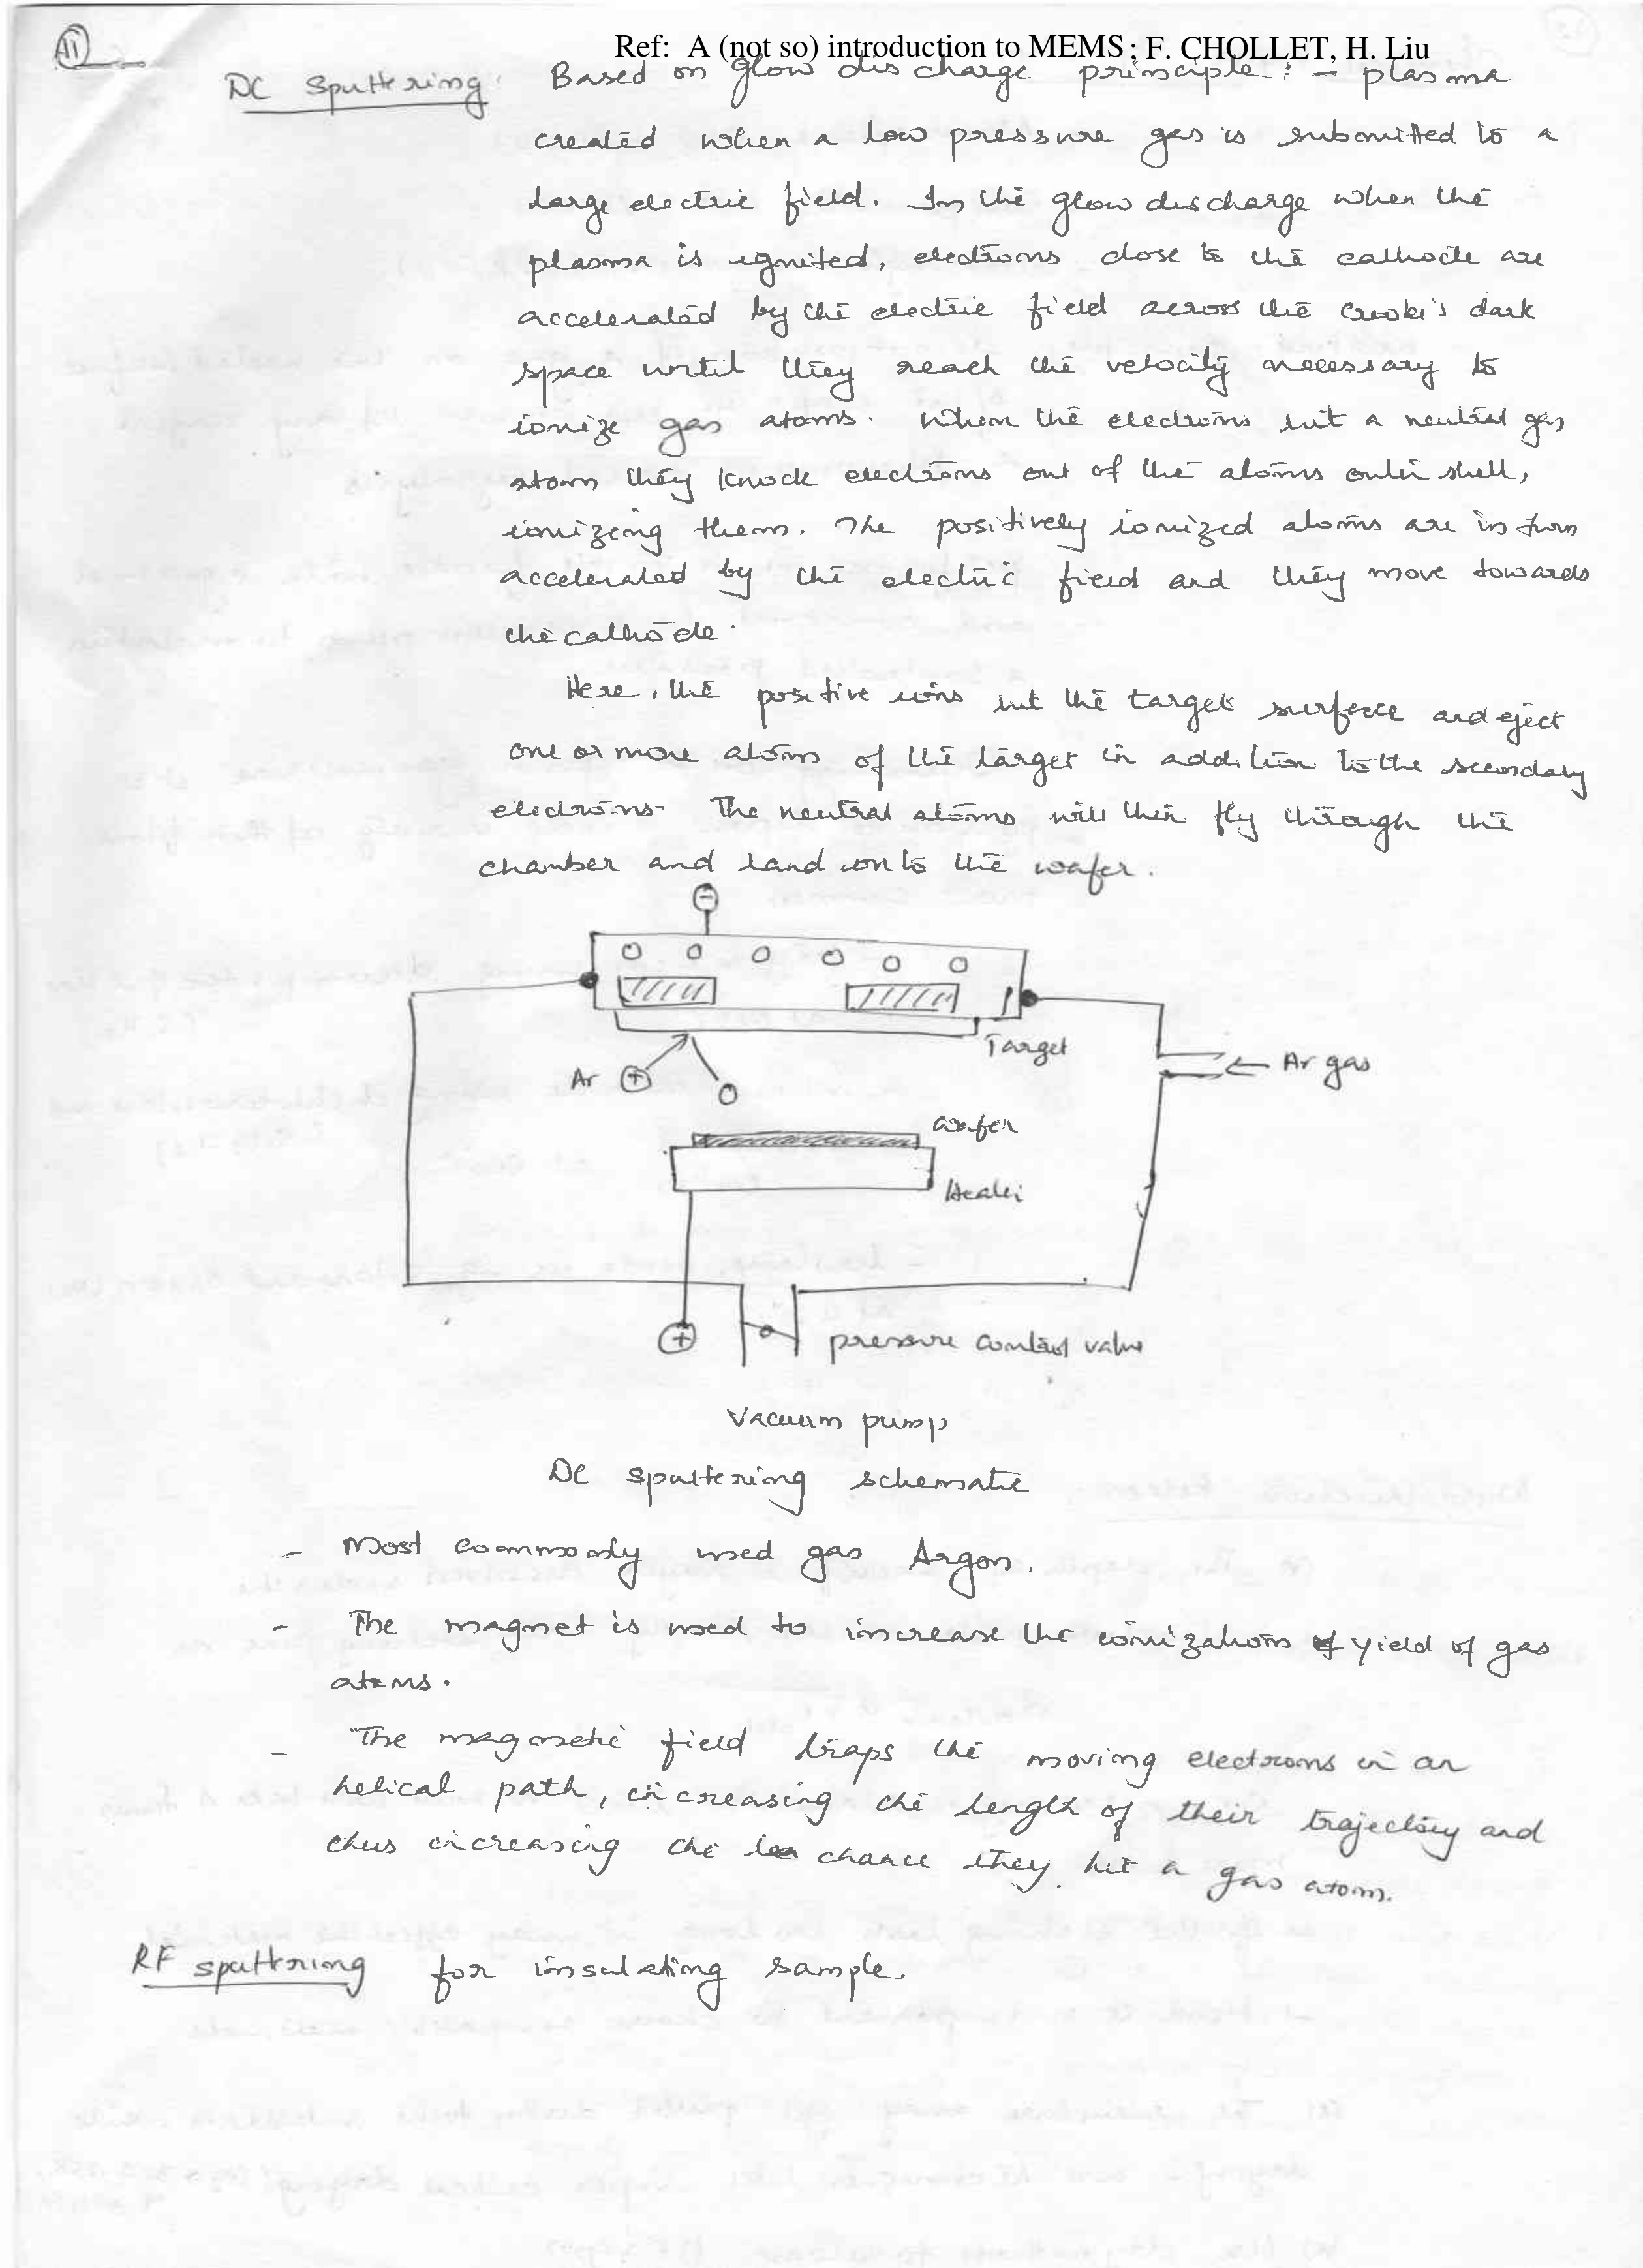 11
Ref: A (not so) introduction to MEMS ; F. CHOLLET, H. Liu
DC Sputtering: Based on glow discharge principle: - plasma
created when a low pressure gas is submitted to a
large electric field. In the glow discharge when the
plasma is ignited, electrons close to the cathode are
accelerated by the electric field across the Crooke's dark
space until they reach the velocity necessary to
ionize gas atoms. When the electrons hit a neutral gas
atom they knock electrons out of the atoms outer shell,
ionizing them. The positively ionized atoms are in turn
accelerated by the electric field and they move towards
the cathode.
Here, the positive ions hit the target surface and eject
one or more atoms of the target in addition to the secondary
electrons. The neutral atoms will then fly through the
chamber and land onto the wafer.
-
Target
Ar +
← Ar gas
wafer
Heater
+
pressure control valve
Vacuum pump
DC sputtering schematic
- Most commonly used gas Argon.
- The magnet is used to increase the ionization yield of gas
atoms.
- The magnetic field traps the moving electrons in an
helical path, increasing the length of their trajectory and
thus increasing the chance they hit a gas atom.
RF sputtering for insulating sample